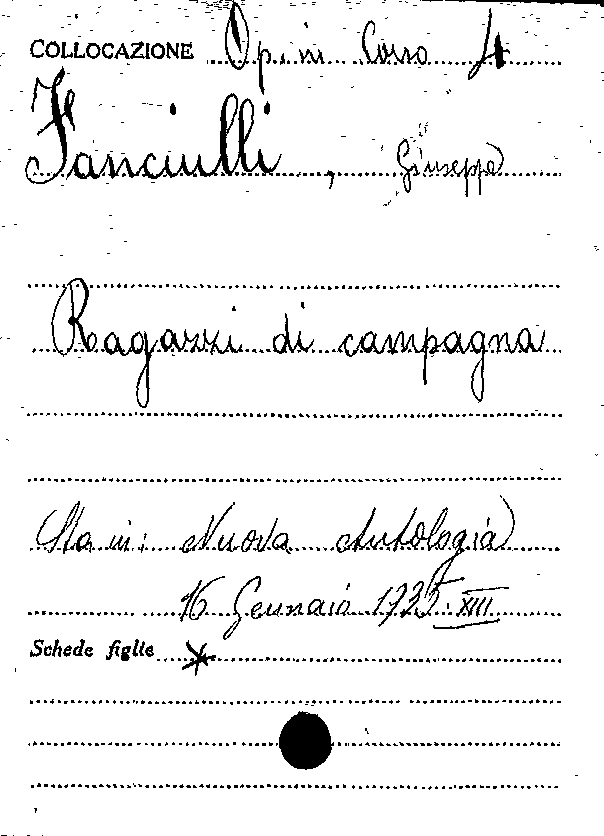 COLLOCAZIONE Op. in Corso 4
Fanciulli, Giuseppe
Ragazzi di campagna
Sta in: Nuova Antologia
16 Gennaio 1935. XIII
Schede figlie